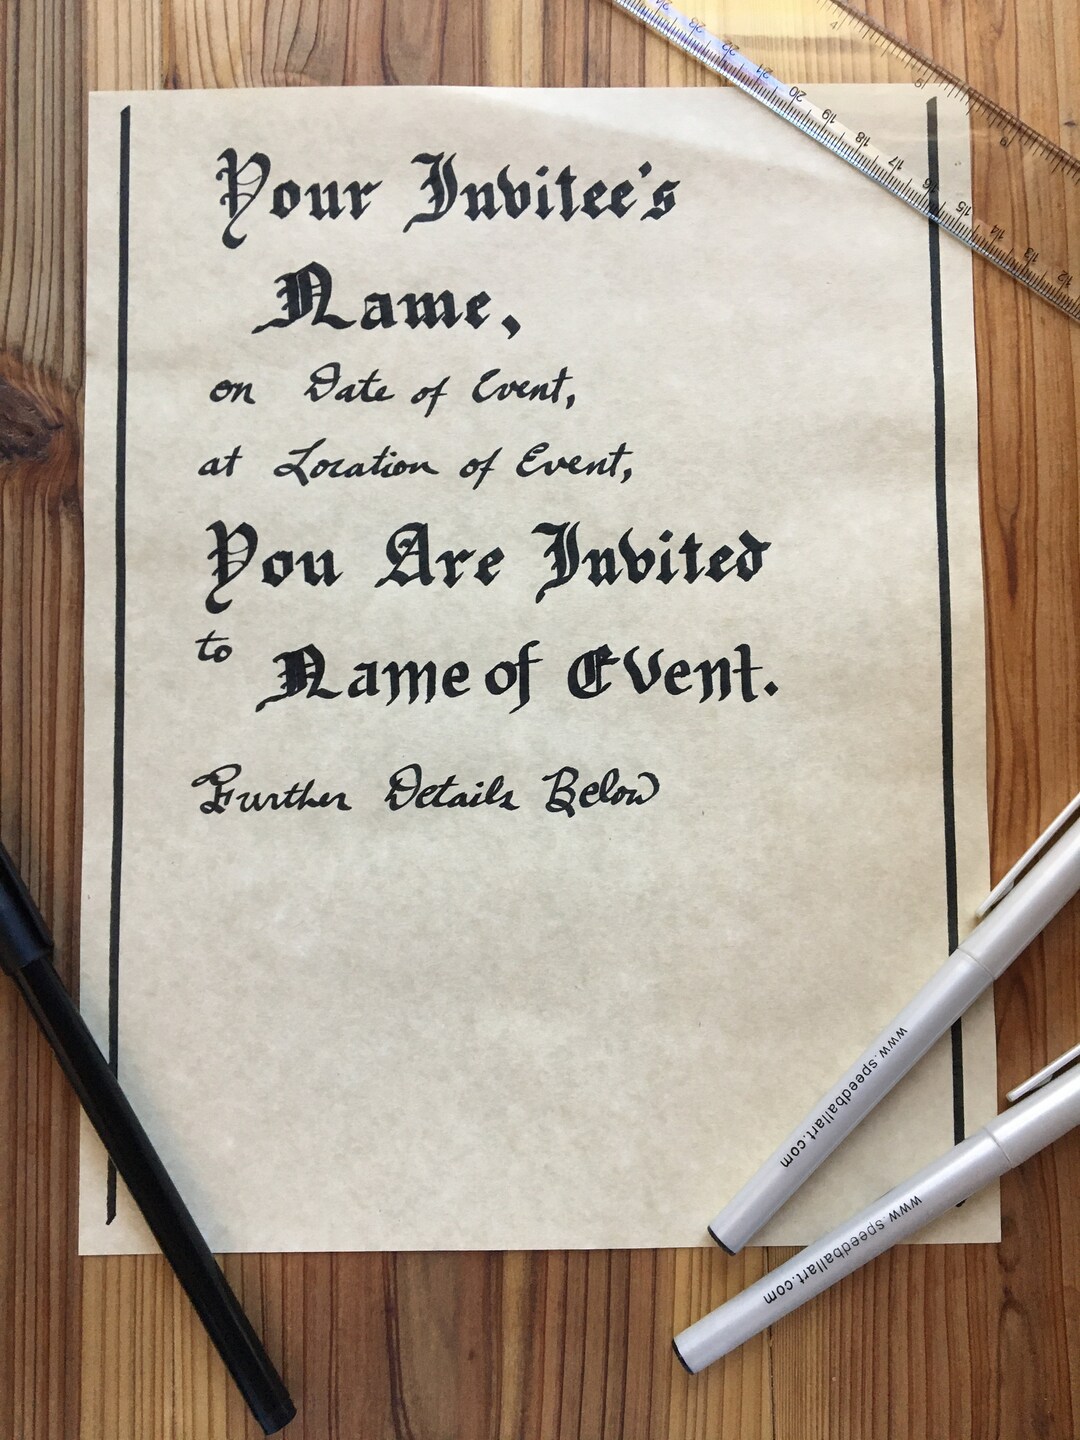 Your Invitee's
Name,
on Date of Event,
at Location of Event,
You Are Invited
to Name of Event.
Further Details Below
www.speedballart.com
www.speedballart.com
24 23 22 21 20 19 18 17 16 15 14 13 12